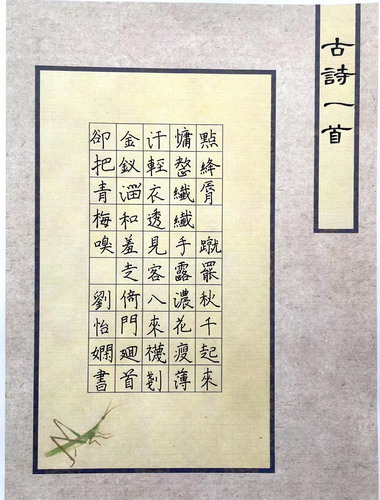 古詩一首
點絳脣 蹴罷秋千起來
慵整纖纖手露濃花瘦薄
汗輕衣透見客入來襪剗
金釵溜和羞走倚門迴首
卻把青梅嗅 劉怡嫻書